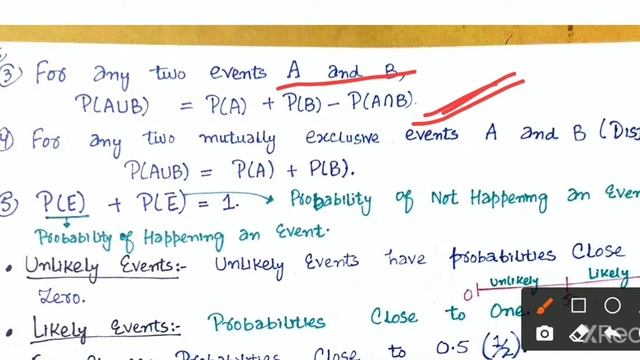 ③ For any two events A and B,
P(A∪B) = P(A) + P(B) – P(A∩B).
④ For any two mutually exclusive events A and B
P(A∪B) = P(A) + P(B).
⑤ P(E) + P(Ē) = 1. → Probability of Not Happening an
Probability of Happening an Event.
• Unlikely Events:- Unlikely Events have probabilities Close
Zero.
0 Unlikely Likely
• Likely Events:- Probabilities Close to One.
Close to 0.5 (1/2)